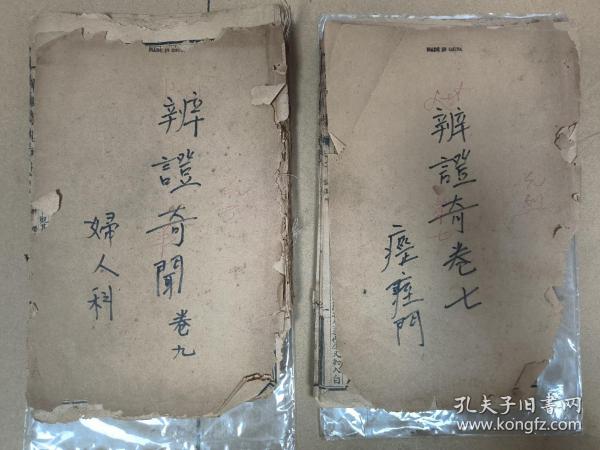 MADE IN CHINA
辨證奇聞 卷九
婦人科
MADE IN CHINA
辨證奇卷七
痙門
孔夫子旧书网
www.kongfz.com